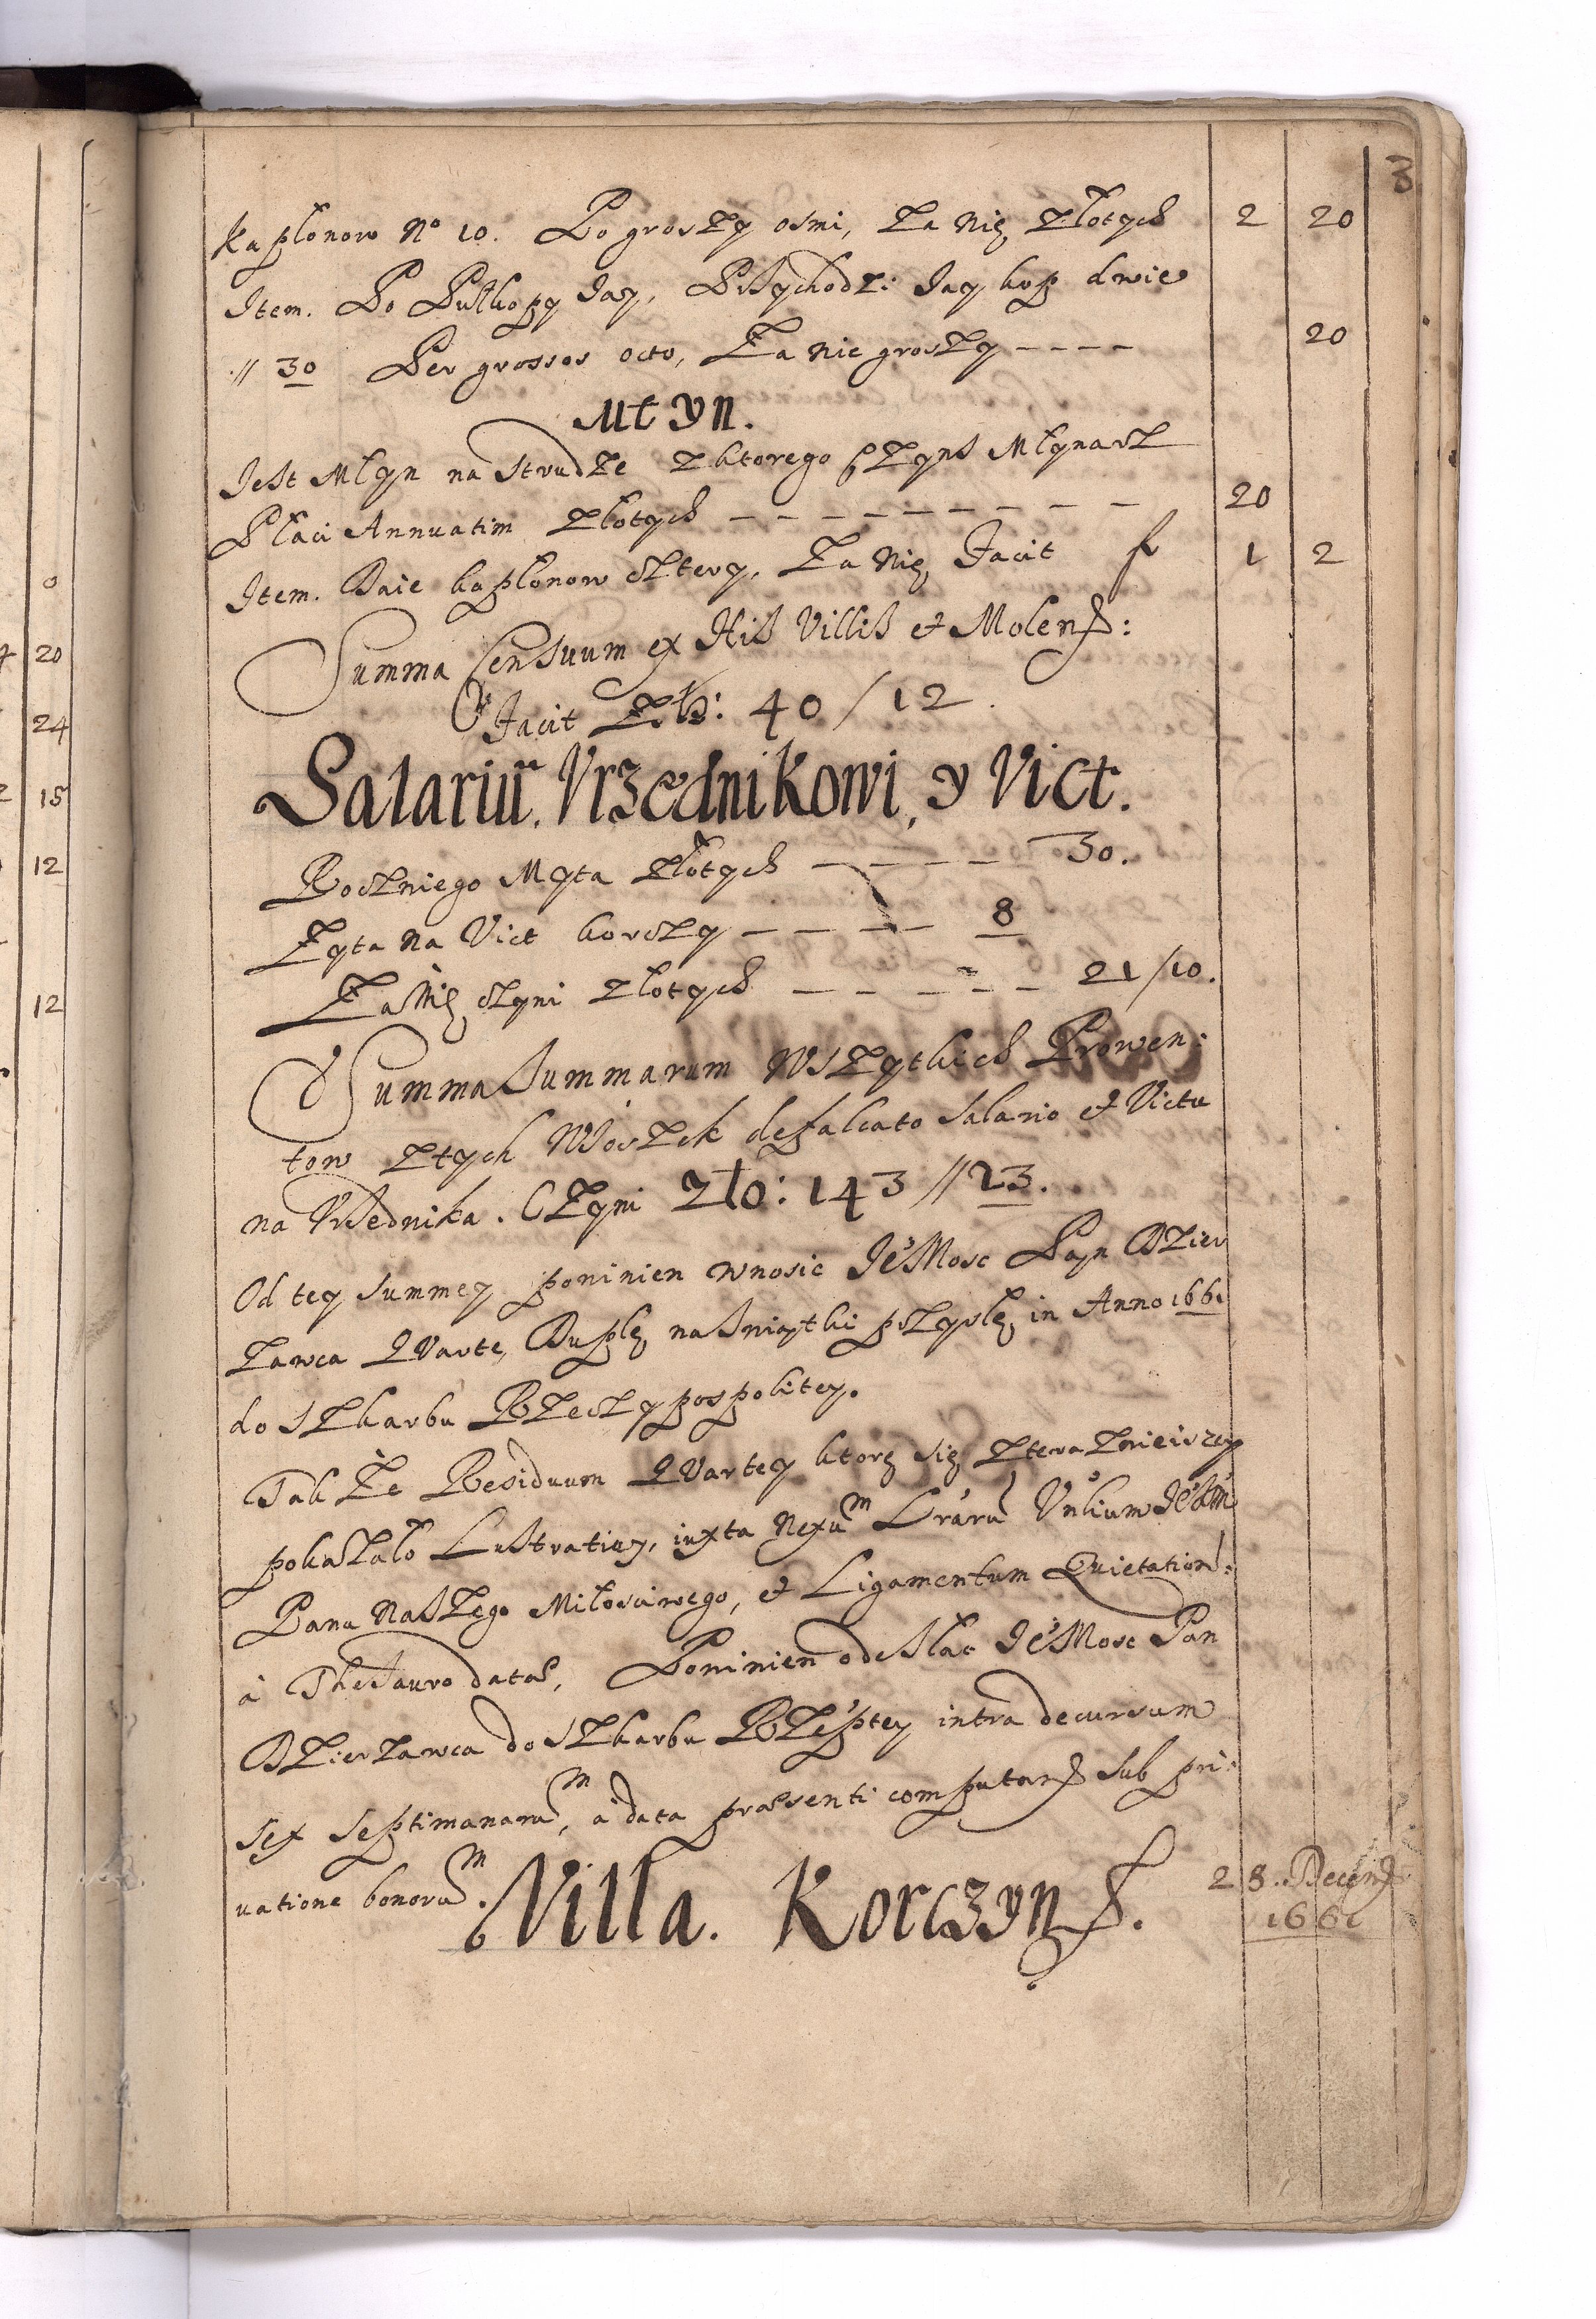 3
Kapłonow No 10. Po groszy osmi, Za Nię Złotych 2 20
Item. Po Pułkopy Jay, Przychodzi Jay kop dwie
// 30 Per grossos octo, Za nie groszy ---- 20
Młyn.
Jest Młyn na Strudze z ktorego Czyns Młynarz
Płaci Annuatim Złotych - - - - - - - - - 20
Item. Daie kapłonow cztery, Za Nię Facit fl 1 2
Summa Censuum ex His Villis et Molend:
Facit Zło: 40 / 12.
Salariū. Vrzędnikowi, y Vict.
Roczniego Myta Złotych - - - - 30.
Zyta na Vict korczy - - - - 8
Za Nię czyni Złotych - - - - - - 21/10.
Summa Summarum Wszytkich Prowen:
tow z tych Wiosek defalcato Salario et Victu
na Vrzednika. Czyni Zło: 143 // 23.
Od tey Summey powinien wnosic Je͠Mosc Pan Dzier
zawca Quarte, Duplę na Swiątki przyszłe, in Anno 1661
do Szkarbu Rzeczypospolitey.
Tak Ze Residuum Quartey ktore się z teraznieiszey
pokazało Lustratiey, iuxta Nexum Lrarū Vnliium JeKm
Pana Naszego Miłosciwego, et Ligamentum Quietation:
à Thesauro datae, Powinien odesłac Je͠Mosc Pan
Dzierzawca do Szkarbu Rzeptey intra decursum
sex septimanarum, à data praesenti computand sub pri:
uatione bonorum.
Villa. Korczyn.
20 24 15 12 12
28. Decemb
1661